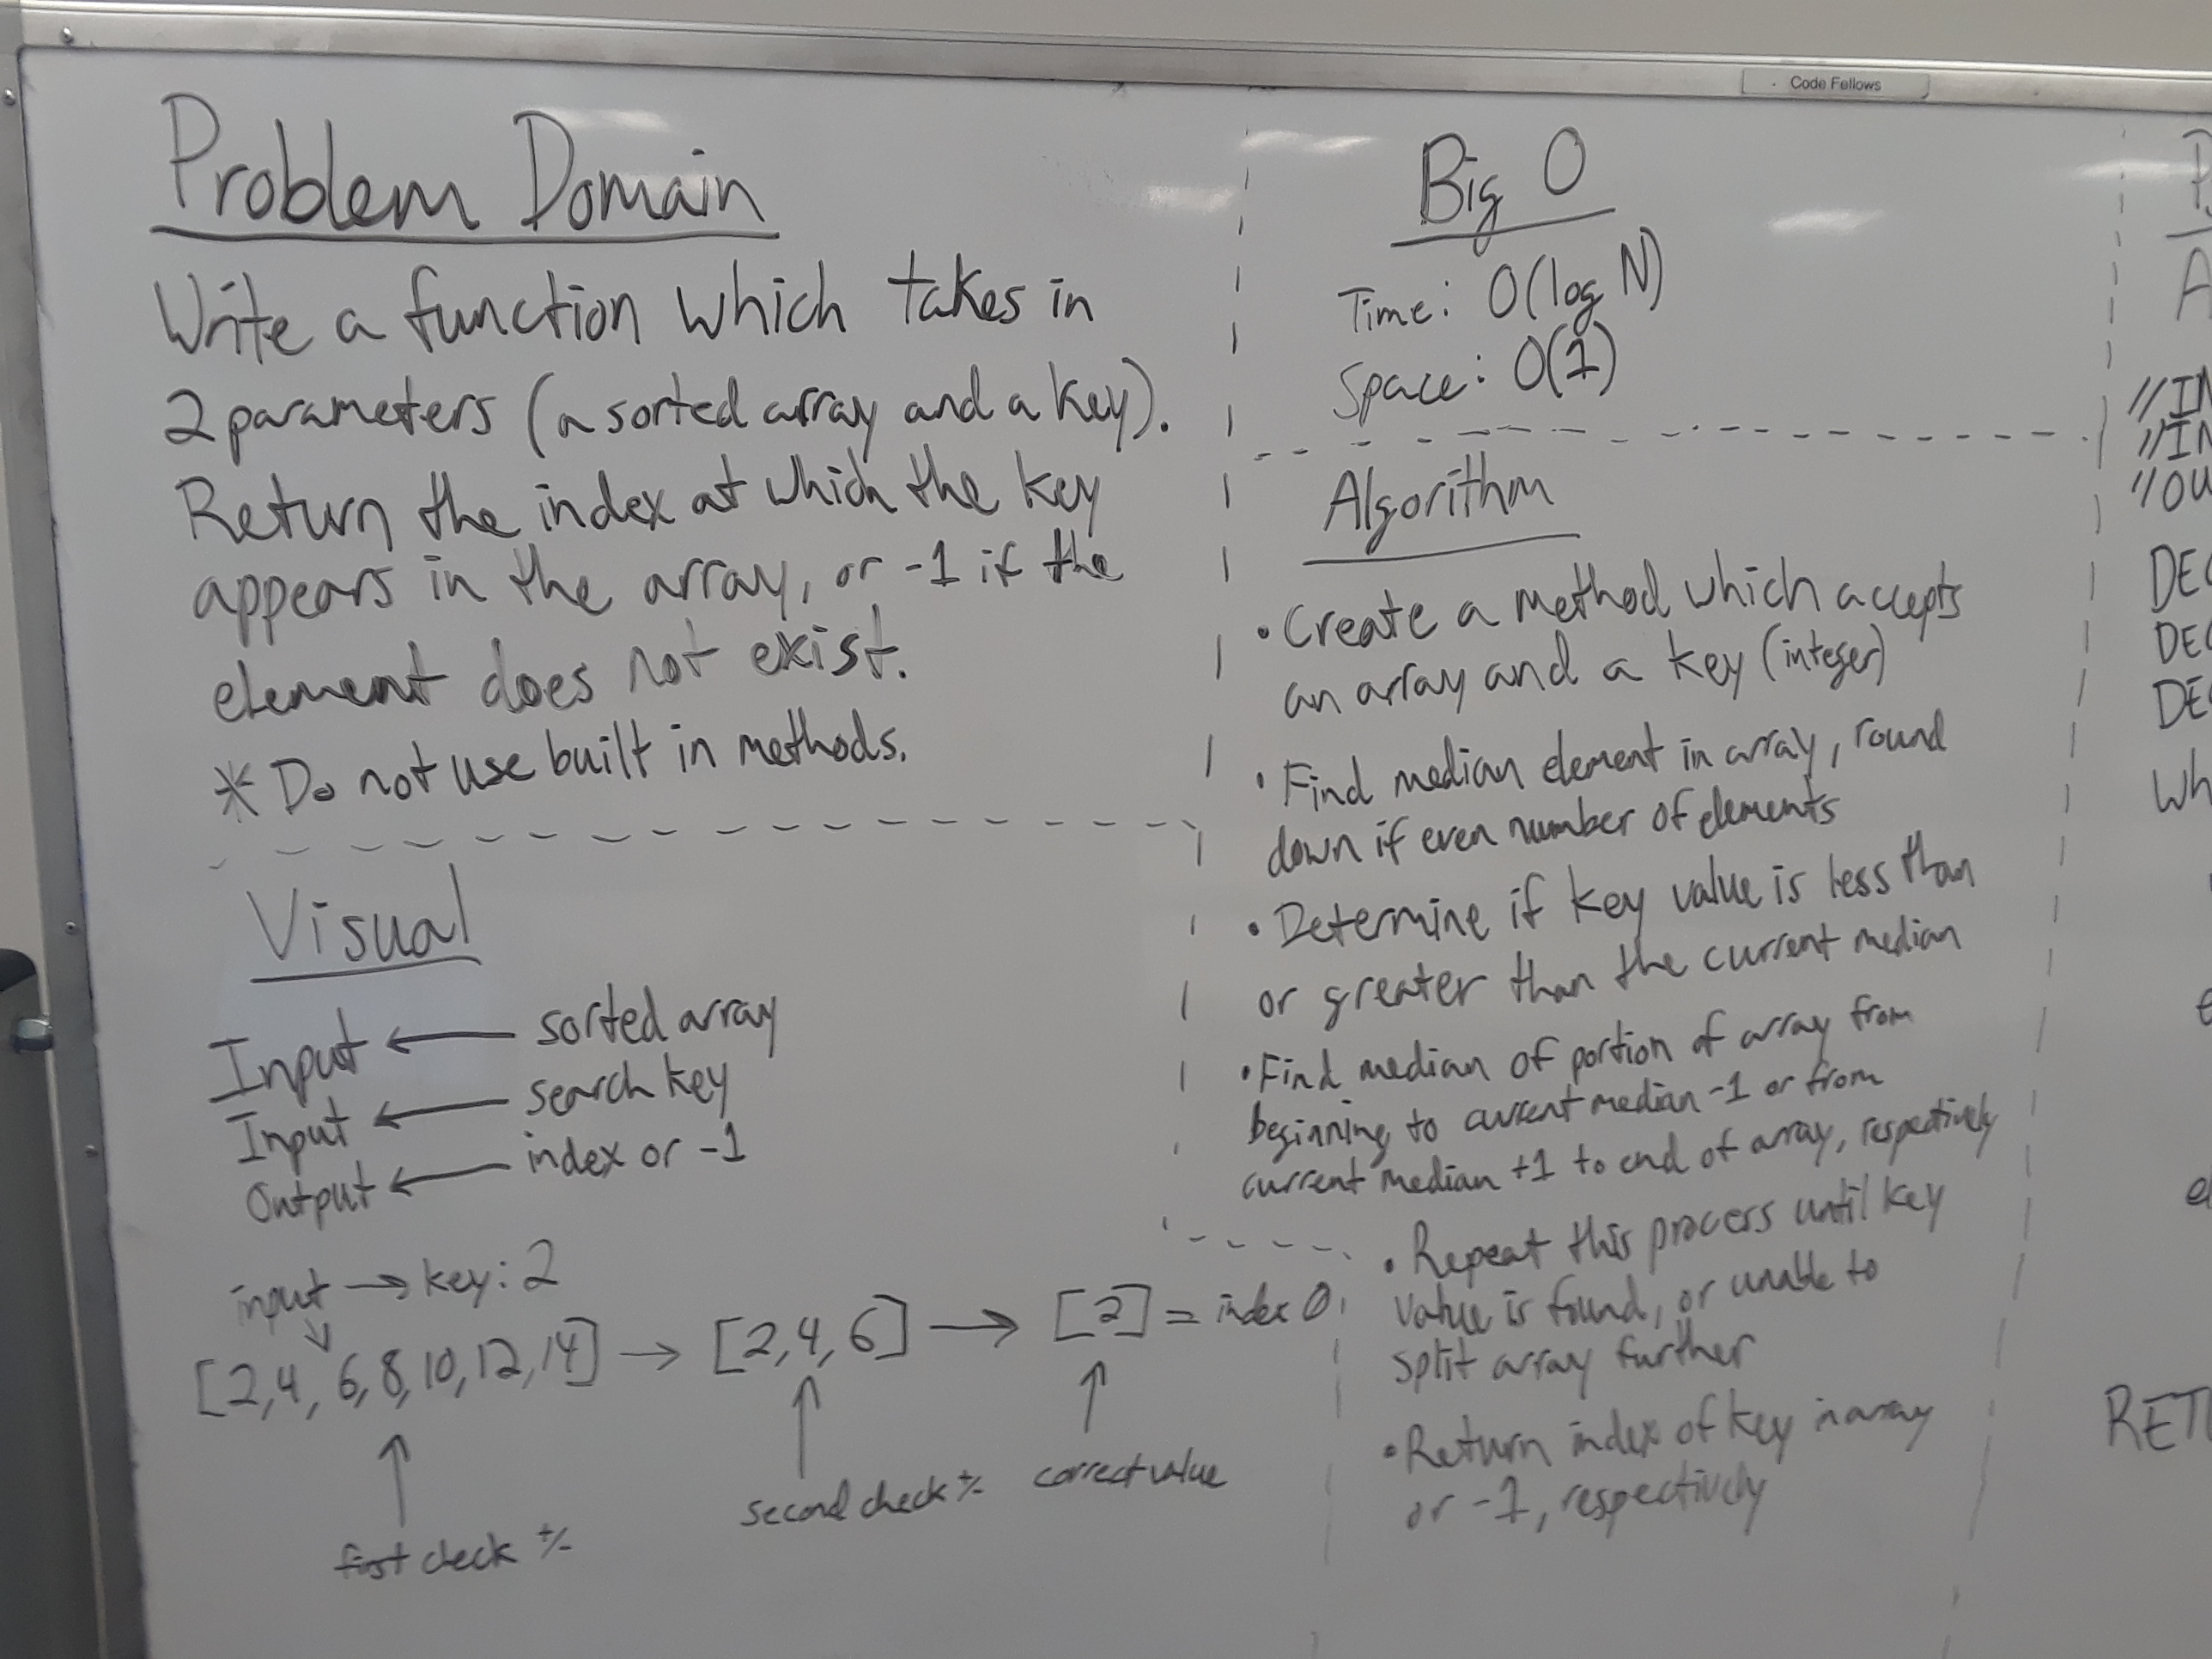 Code Fellows
Problem Domain
Write a function which takes in
2 parameters (a sorted array and a key).
Return the index at which the key
appears in the array, or -1 if the
element does not exist.
* Do not use built in methods.
Visual
Input ← sorted array
Input ← search key
Output ← index or -1
input → key: 2
[2,4, 6,8,10,12,14] → [2,4,6] → [2] = index 0
first check +/-
second check +/-
correct value
Big O
Time: O(log N)
Space: O(1)
Algorithm
• Create a method which accepts
an array and a key (integer)
• Find median element in array, round
down if even number of elements
• Determine if key value is less than
or greater than the current median
• Find median of portion of array from
beginning to current median -1 or from
current median +1 to end of array, respectively
• Repeat this process until key
value is found, or unable to
split array further
• Return index of key in array
or -1, respectively
A
//IN
//IN
//OU
DEC
DEC
DEC
Wh
e
el
RET